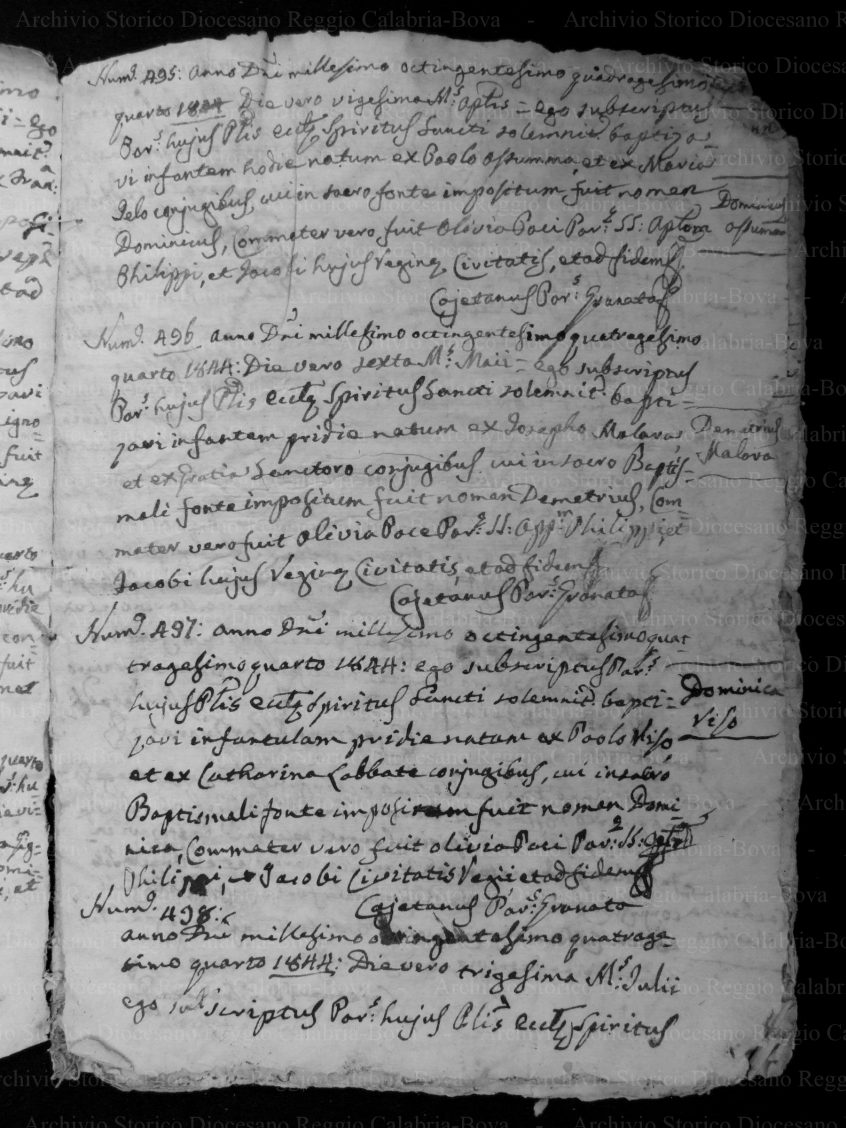 Archivio Storico Diocesano Reggio Calabria-Bova - Archivio Storico Diocesano R
Num.º 495: Anno Dñi millesimo octingentesimo quadragesimo
quarto 1844 Die vero vigesima M.s Aplis = ego subscriptus
Par.s hujus Plis Ecclę Spiritus Sancti solemnit.r baptiza=
vi infantem hodie natum ex Paolo Assumma, et ex Maria
Ielo conjugibus, cui in sacro fonte impositum fuit nomen
Dominicus, Commater vero fuit Olivia Paci Par.s SS: Aplorū
Philippi, et Jacobi hujus Reginę Civitatis, et ad fidem
Cajetanus Par.s Granata
Dominicus
Assumma
Num.º 496 Anno Dñi millesimo octingentesimo quatragesimo
quarto 1844: Die vero sexta M.s Maii = ego subscriptus
Par.s hujus Plis Ecclę Spiritus Sancti solemnit.r bapti-
zavi infantem pridie natum ex Josepho Malara
et ex Gratia Santoro conjugibus cui in sacro Baptis=
mali fonte impositum fuit nomen Demetrius, Com=
mater vero fuit Olivia Pace Par.s SS: App.m Philippi, et
Jacobi hujus Reginę Civitatis, et ad fidem
Cajetanus Par.s Granata
Demetrius
Malara
Num.º 497: Anno Dñi millesimo octingentesimo quat=
tragesimo quarto 1844: ego subscriptus Par.s
hujus Plis Ecclę Spiritus Sancti solemnit.r bapti=
zavi infantulam pridie natam ex Paolo Viso
et ex Catharina Labbate conjugibus, cui in sacro
Baptismali fonte impositum fuit nomen Domi=
nica, Commater vero fuit Olivia Paci Par.s SS:
Philippi, Jacobi Civitatis Regii et ad fidem
Cajetanus Par.s Granata
Dominica
Viso
Num.º 498:
Anno Dñi millesimo octingentesimo quatrage=
simo quarto 1844: Die vero trigesima M.s Julii
ego subscriptus Par.s hujus Plis Ecclę Spiritus